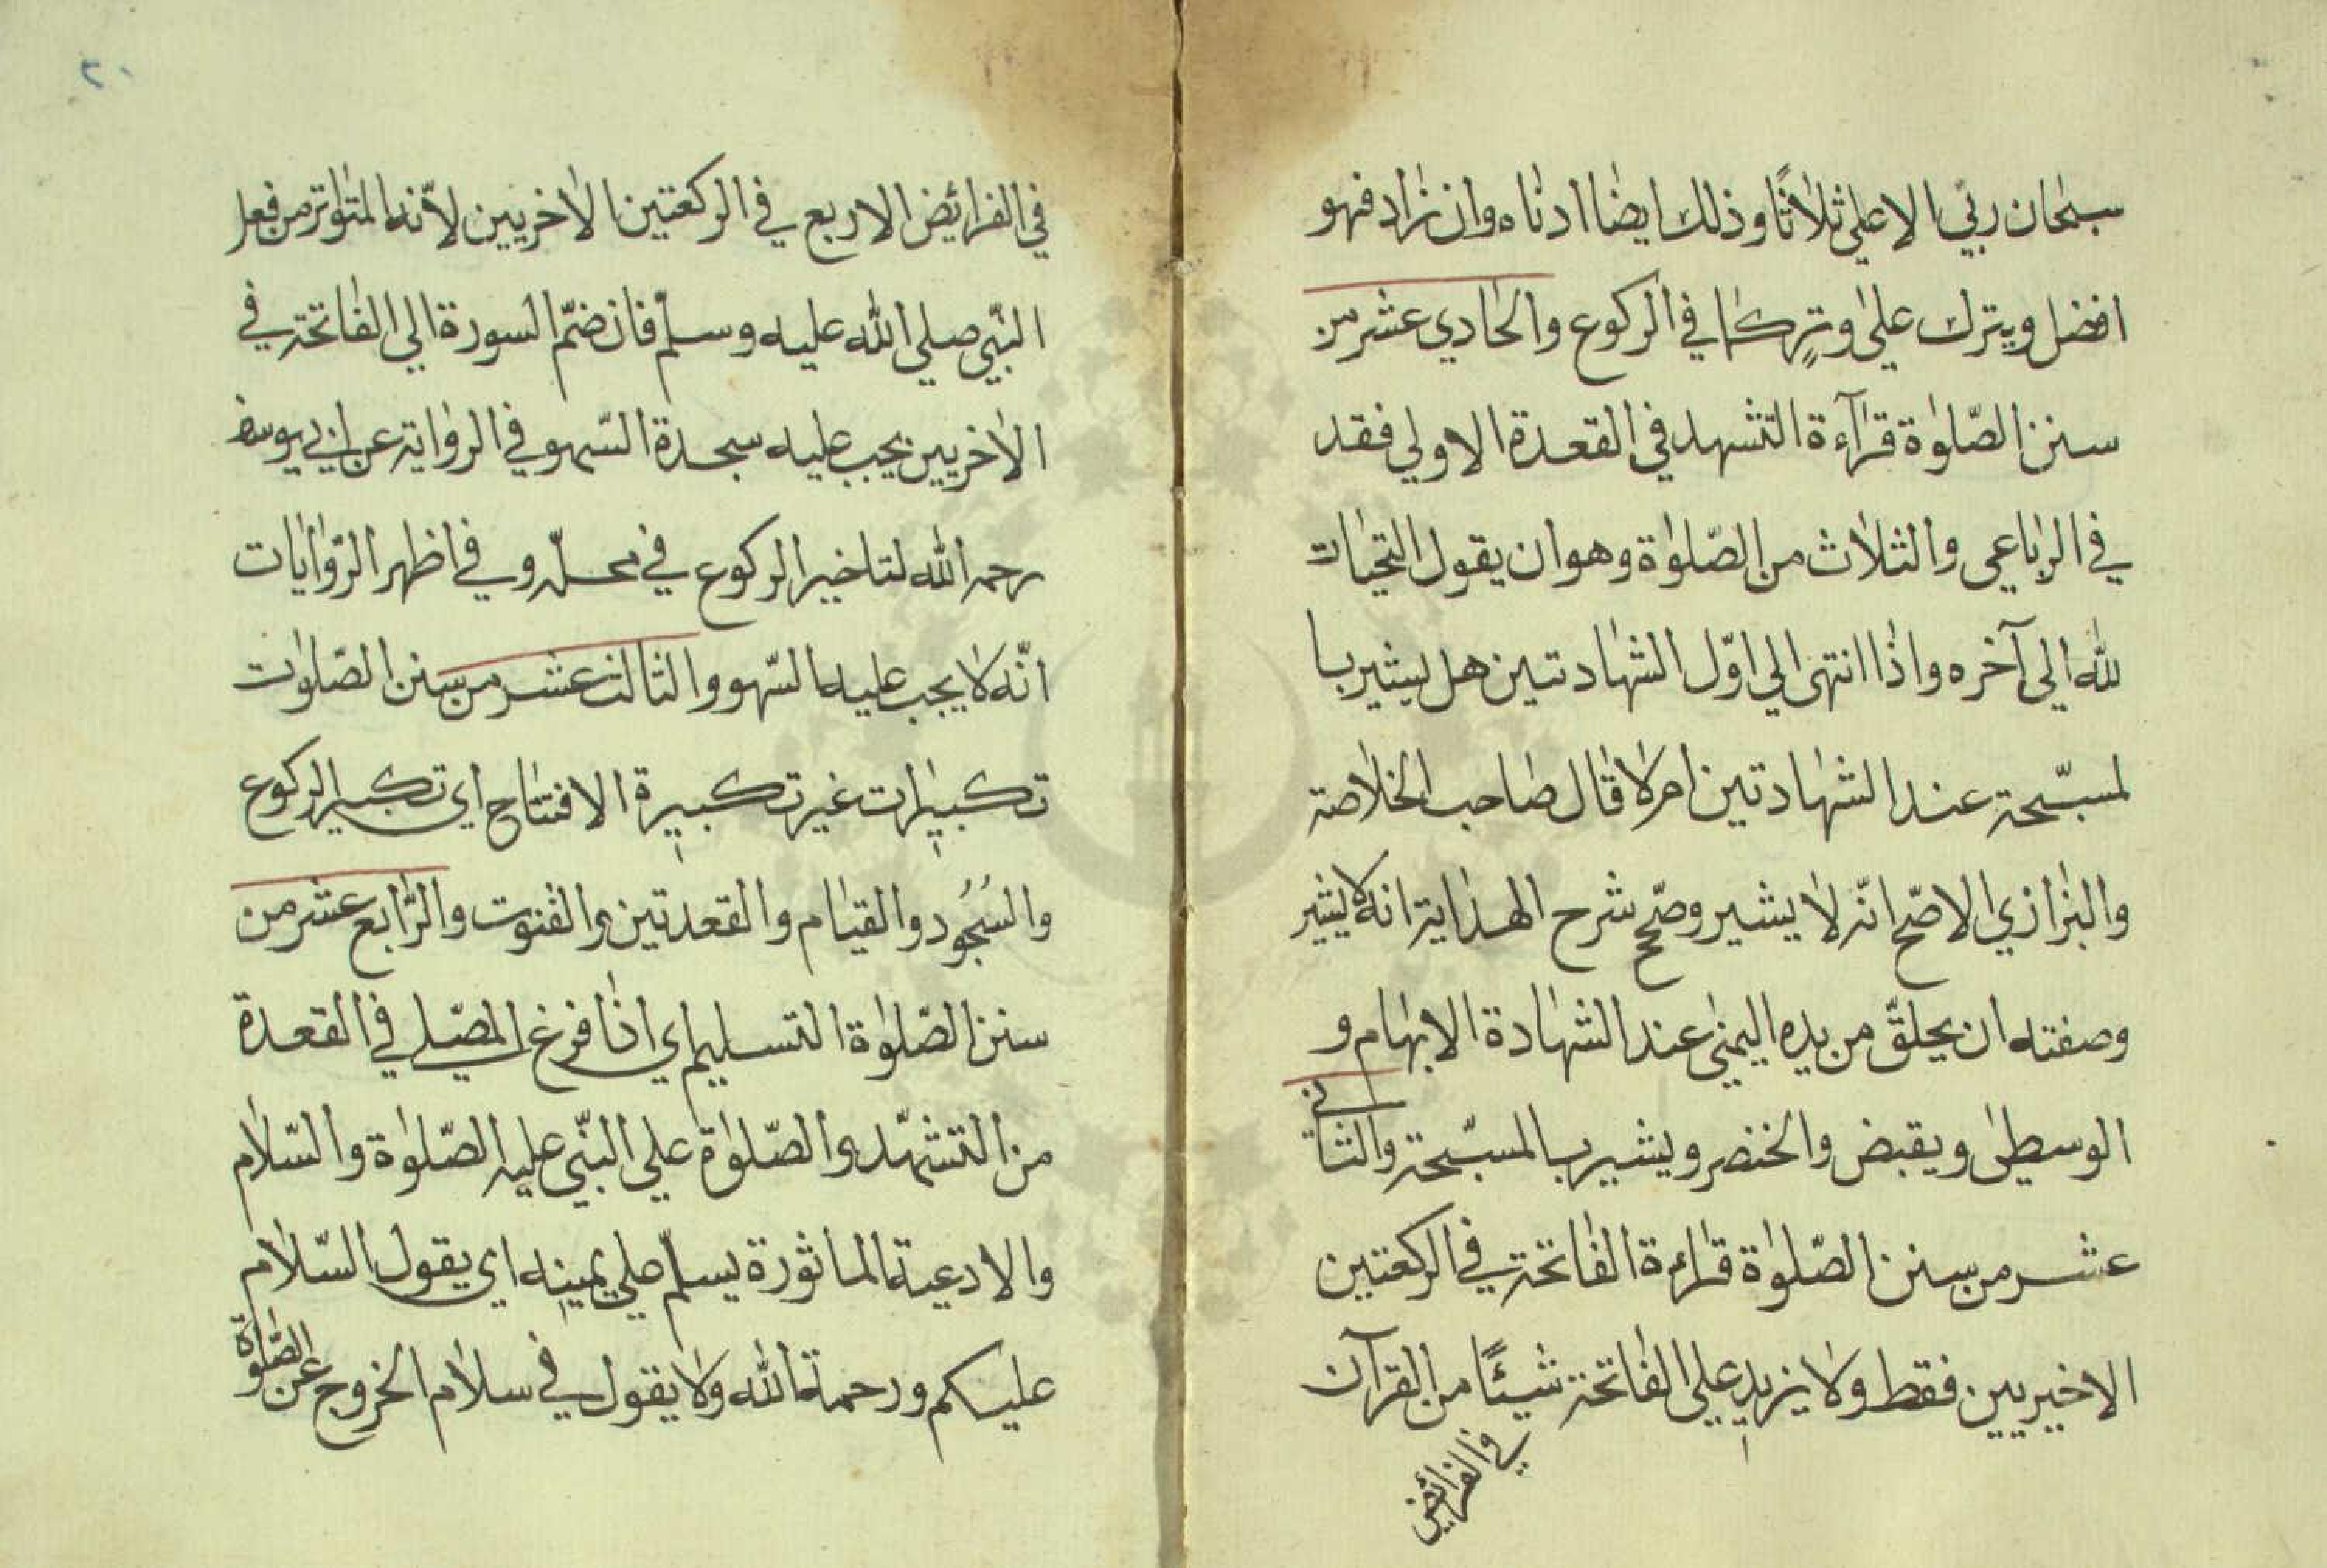 سبحان ربي الاعلى ثلاثا وذلك ايضا ادناه وان زاد فهو
افضل ويترك على وتر كما في الركوع والحادي عشر من
سنن الصلوة قرآءة التشهد في القعدة الاولي فقد
في الرباعي والثلاث من الصلوة وهو ان يقول التحيات
لله الي آخره واذا انتهى الي اوّل الشهادتين هل يشير با
لمسبّحة عند الشهادتين ام لا قال صاحب الخلاصة
والبزازي الاصحّ انّه لا يشير وصحّح شرح الهداية انه لا يشير
وصفته ان يحلقّ من يده اليمنى عند الشهادة الابهام و
الوسطى ويقبض والخنصر ويشير بالمسبّحة والثاني
عشر من سنن الصّلوة قراءة الفاتحة في الركعتين
الاخيريين فقط ولا يزيد علي الفاتحة شيئًا من القرآن
في الفرائض
٢٠
في الفرائض الاربع في الركعتين الاخريين لانّه المتواتر من فعل
النّبي صلي الله عليه وسلّم فان ضمّ السورة الي الفاتحة في
الاخريين يجب عليه سجدة السّهو في الرواية عن ابي يوسف
رحمه الله لتاخير الركوع في محلّه وفي اظهر الرّوايات
انّه لا يجب عليه السّهو والثالث عشر من سنن الصّلوات
تكبيرات غير تكبيرة الافتتاح اي تكبير الركوع
والسُجُود والقيام والقعدتين والقنوت والرّابع عشر من
سنن الصّلوة التسليم اي اذا فرغ المصّلي في القعدة
من التشهّد والصّلوة علي النّبي عليه الصّلوة والسّلام
والادعية الماثورة يسلّم علي يمينه اي يقول السّلام
عليكم ورحمة الله ولا يقول في سلام الخروج عن الصّلوة